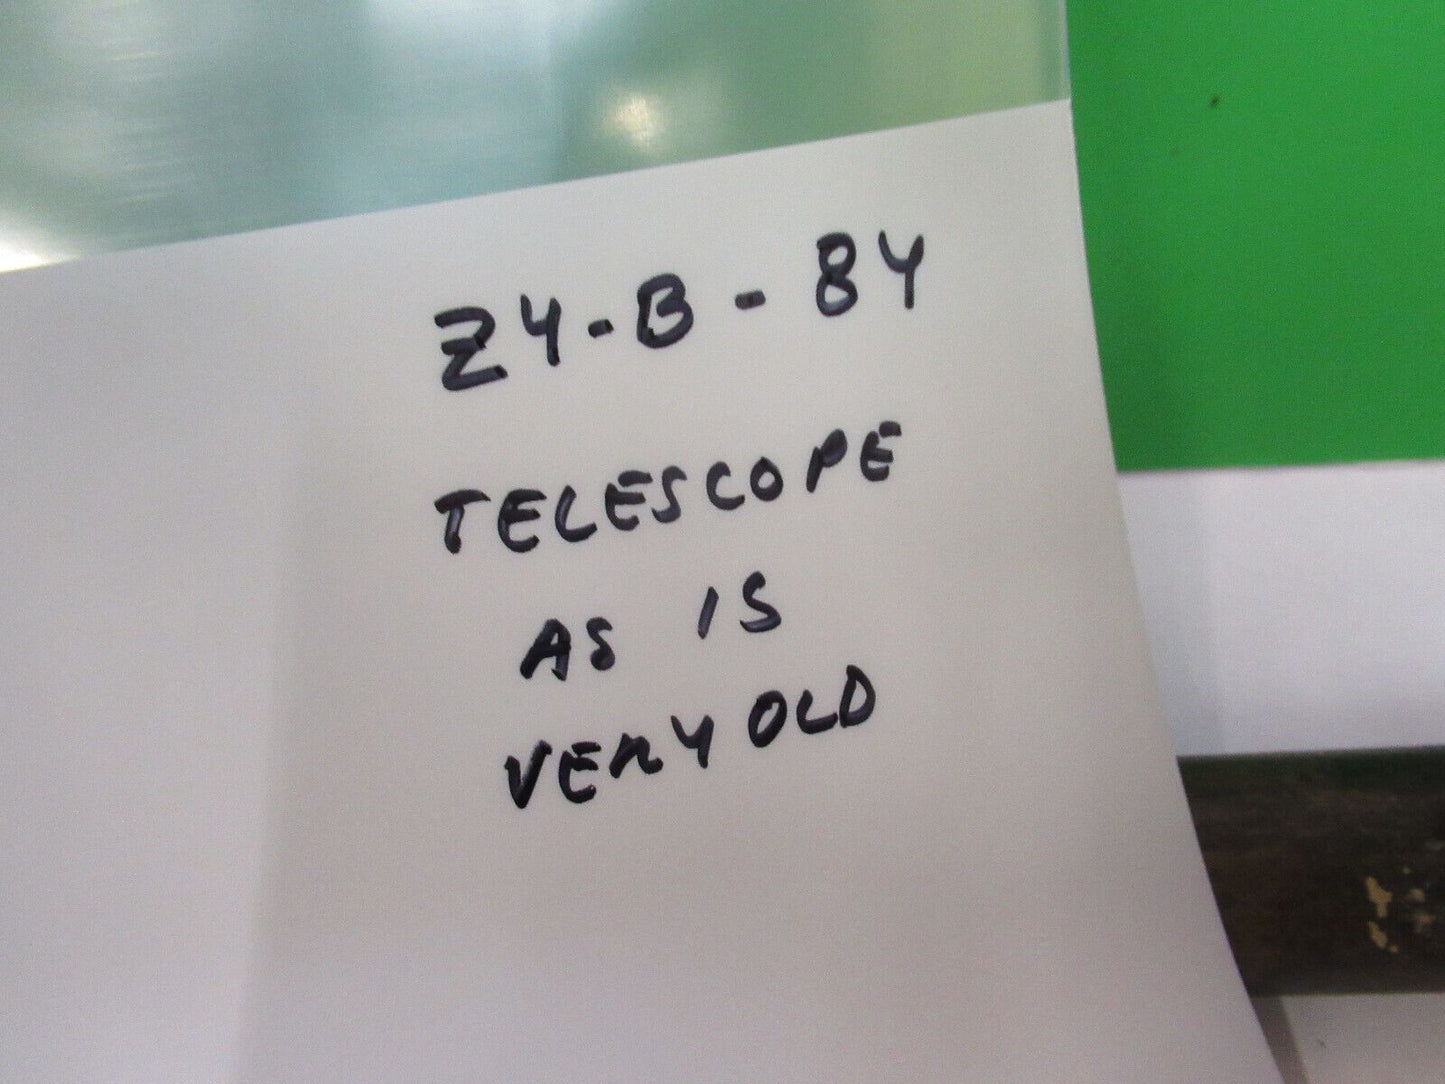 Z4-B-84
TELESCOPE
AS IS
VERY OLD